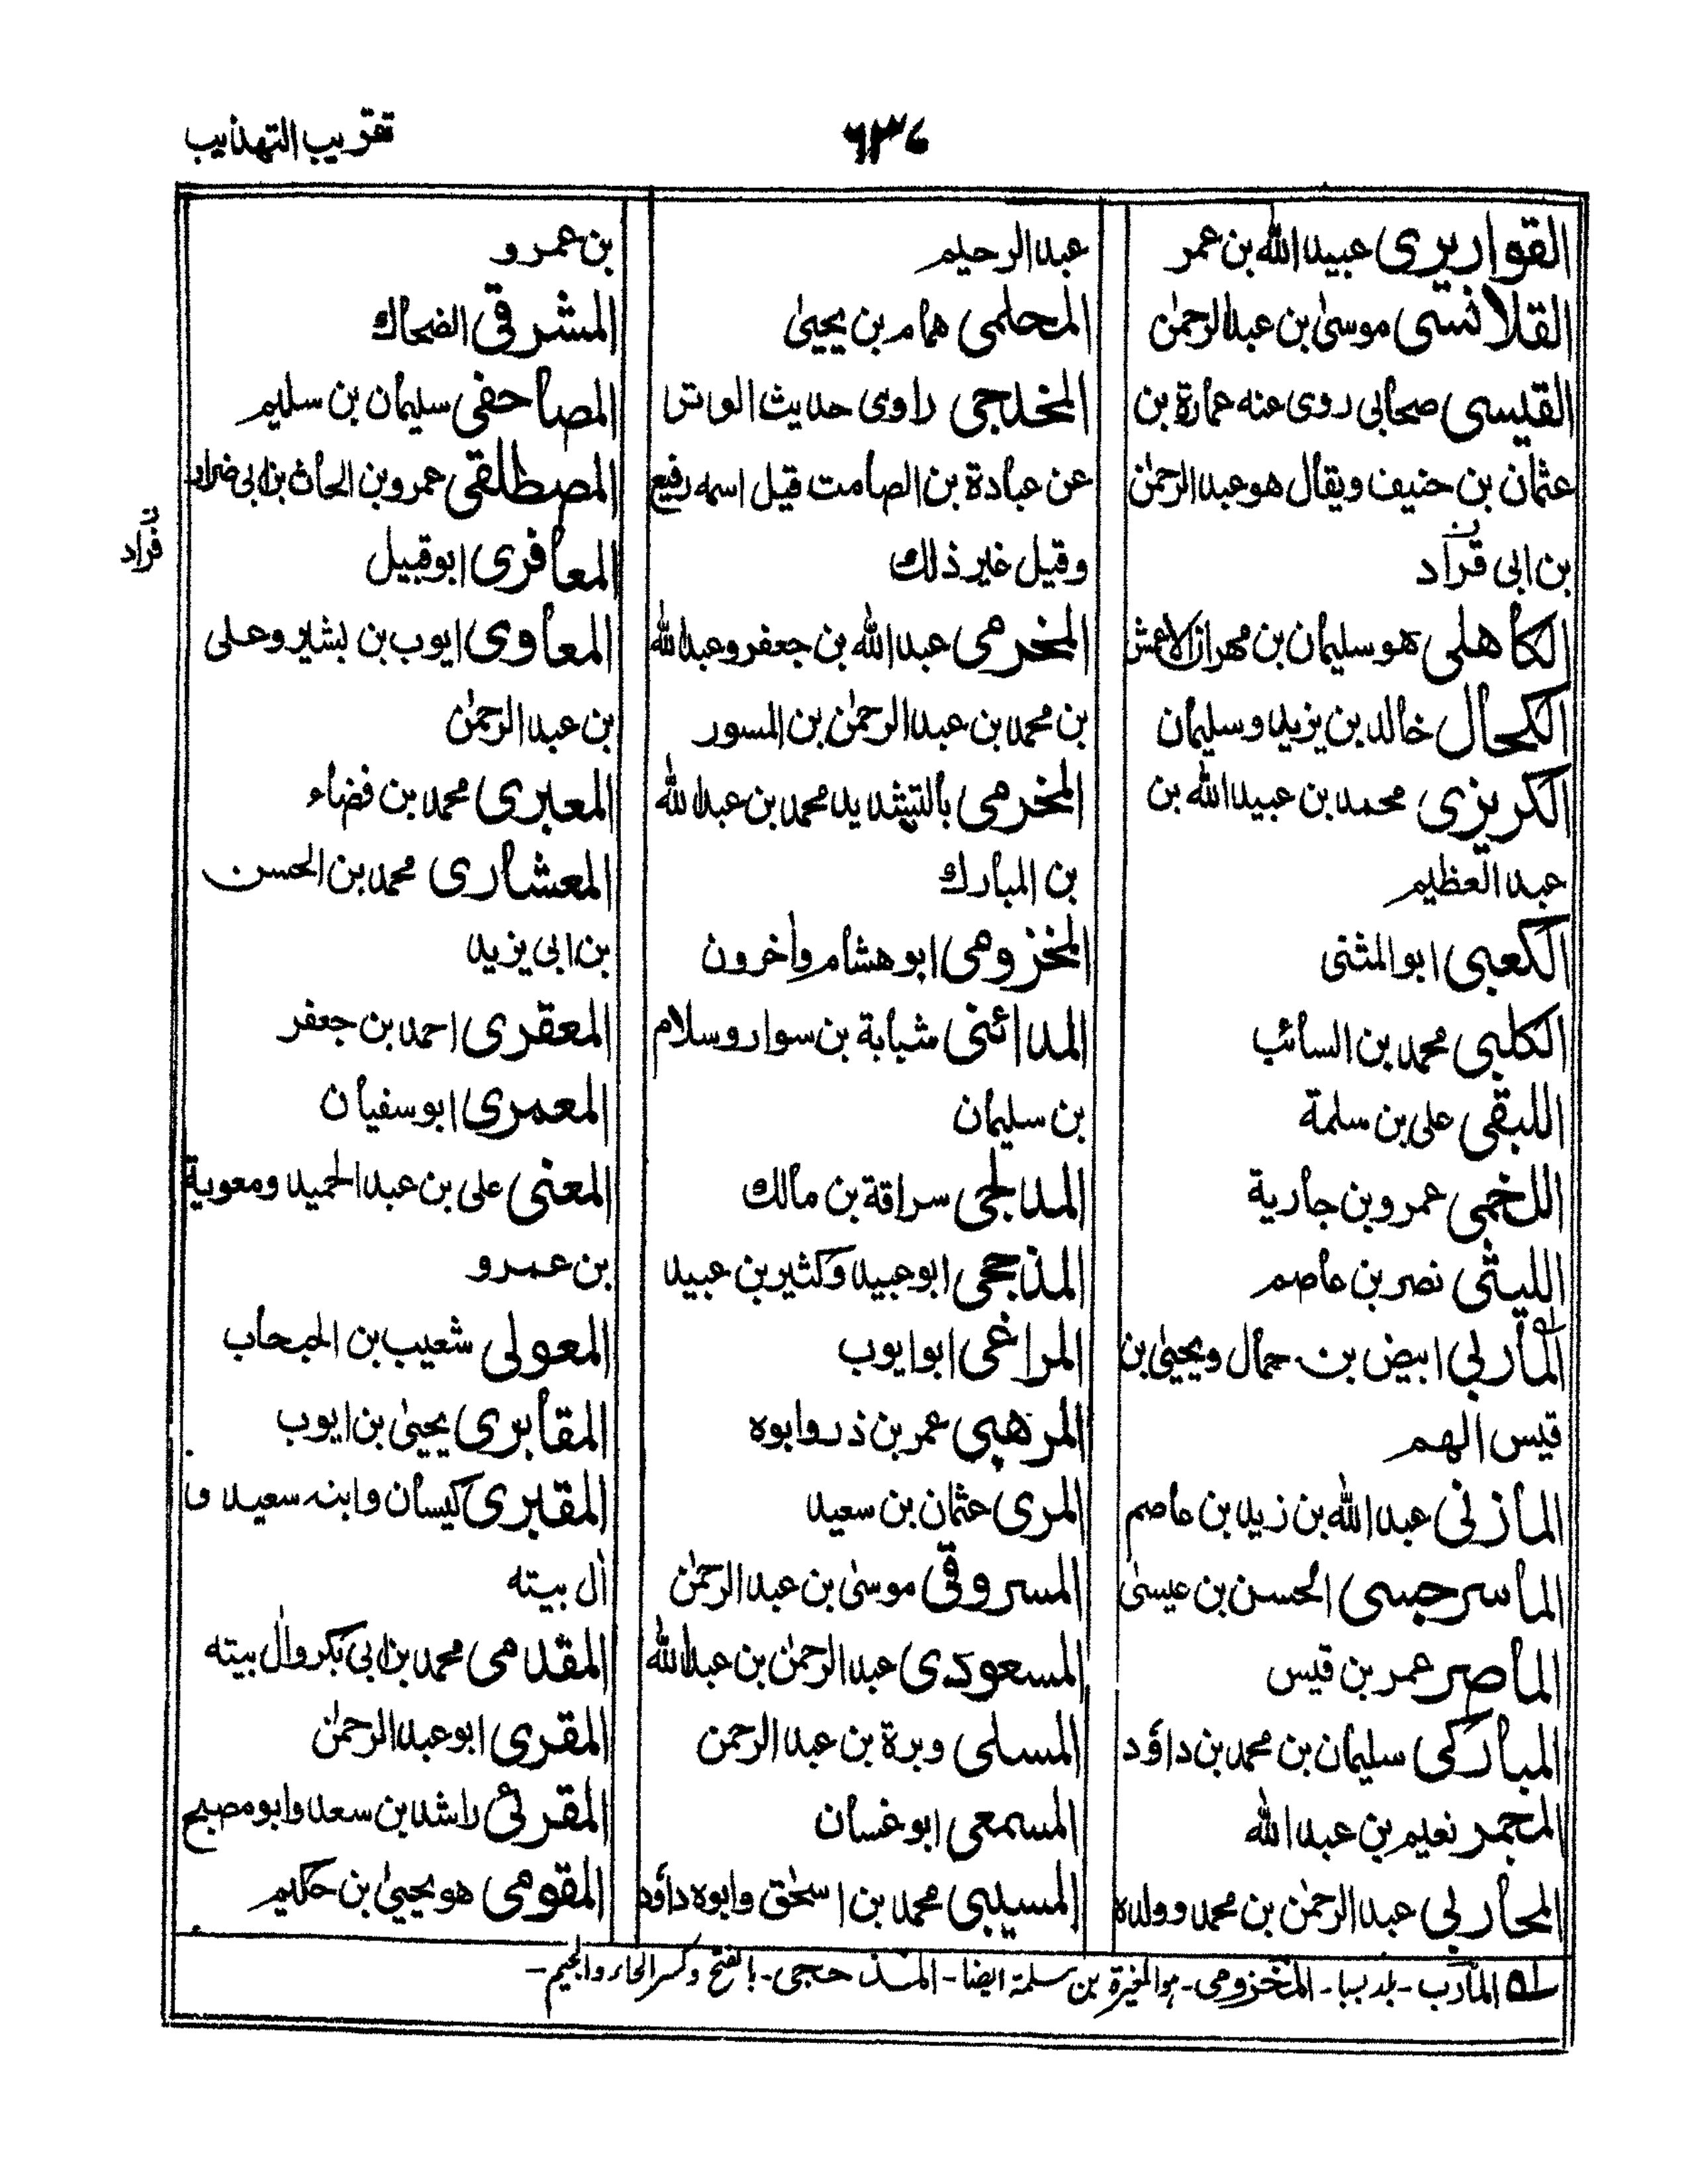 تقريب التهذيب
٦٣٦
القواريرى عبيد الله بن عمر
القلانسى موسىٰ بن عبد الرحمٰن
القيسى صحابى روى عنه عمارة بن
عثمان بن حنيف ويقال هو عبد الرحمٰن
بن ابى قراد
الكاهلى هو سليمان بن مهران الاعمش
الكحال خالد بن يزيد وسليمان
الكريزى محمد بن عبيد الله بن
عبد العظيم
الكعبى ابو المثنى
الكلبى محمد بن السائب
اللبقى على بن سلمة
اللخمى عمرو بن جارية
الليثى نصر بن عاصم
المأربى ابيض بن حمال ويحيىٰ بن
قيس الهم
المازنى عبد الله بن زيد بن عاصم
الماسرجسى الحسن بن عيسىٰ
الماصر عمر بن قيس
المباركى سليمان بن محمد بن داؤد
المجمر نعيم بن عبد الله
المحاربى عبد الرحمٰن بن محمد وولده
عبد الرحيم
المحلمى همام بن يحيىٰ
المخدجى راوى حديث الوتر
عن عبادة بن الصامت قيل اسمه رفيع
وقيل غير ذلك
المخرمى عبد الله بن جعفر وعبد الله
بن محمد بن عبد الرحمٰن بن المسور
المخرمى بالتشديد محمد بن عبد الله
بن المبارك
المخزومى ابو هشام وأخرون
المدائنى شبابة بن سوار وسلام
بن سليمان
المدلجى سراقة بن مالك
المذحجى ابو عبيد وكثير بن عبيد
المراغى ابو ايوب
المرهبى عمر بن ذر وابوه
المرى عثمان بن سعيد
المسروقى موسىٰ بن عبد الرحمٰن
المسعودى عبد الرحمٰن بن عبد الله
المسلى وبرة بن عبد الرحمن
المسمعى ابو غسان
المسيبى محمد بن اسحٰق وابوه داؤد
بن عمرو
المشرقى الضحاك
المصاحفى سليمان بن سليم
المصطلقى عمرو بن الحارث بن ابى ضرار
المعافرى ابو قبيل
المعاوى ايوب بن بشير وعلى
بن عبد الرحمٰن
المعبرى محمد بن فضاء
المعشارى محمد بن الحسن
بن ابى يزيد
المعقرى احمد بن جعفر
المعمرى ابو سفيان
المعنى على بن عبد الحميد ومعوية
بن عمرو
المعولى شعيب بن الحبحاب
المقابرى يحيىٰ بن ايوب
المقبرى كيسان وابنه سعيد و
أل بيته
المقدمى محمد بن ابى بكر وأل بيته
المقرى ابو عبد الرحمٰن
المقرئى راشد بن سعد وابو مصبح
المقومى هو يحيىٰ بن حكيم
ن قراد
لـه المأرب - بلد بسبا - المخزومى - هو المغيرة بن سلمة ايضا - المذحجى - بالفتح وكسر الحاء والجيم -